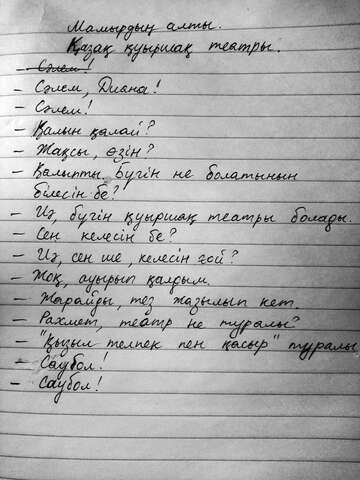 Мамырдың алты.
Қазақ қуыршақ театры.
- Сәлем!
- Сәлем, Диана!
- Сәлем!
- Қалын қалай?
- Жақсы, өзін?
- Қалыпты. Бүгін не болатынын
білесін бе?
- Иә, бүгін қуыршақ театры болады.
- Сен келесін бе?
- Иә, сен ше, келесін ғой?
- Жоқ, ауырып қалдым.
- Жарайды, тез жазылып кет.
- Рахмет, театр не туралы?
- "Қызыл телпек пен қасқыр" туралы
- Саубол!
- Саубол!